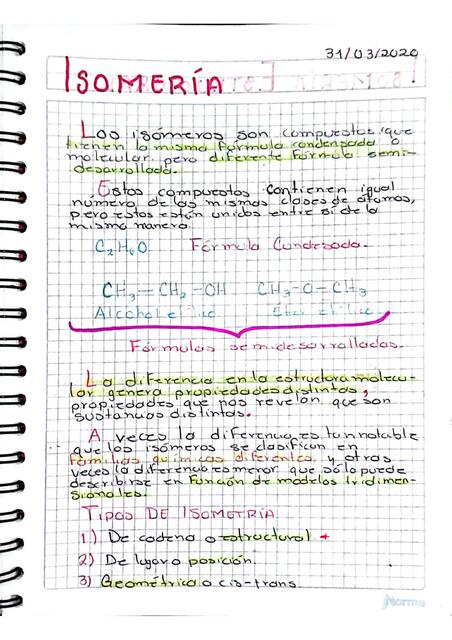 31/03/2020
ISOMERÍA
Los isómeros son compuestos que
tienen la misma fórmula condensada o
molecular, pero diferente fórmula semi-
desarrollada.
Estos compuestos contienen igual
número de las mismas clases de átomos,
pero estos están unidos entre sí de la
misma manera.
C2H6O Fórmula Condesada.
CH3—CH2-OH CH3-O-CH3
Alcohol etílico Éter etílico
Fórmulas semidesarrolladas.
La diferencia en la estructura molecu-
lar genera propiedades distintas,
propiedades que nos revelan que son
sustancias distintas.
A veces la diferencia es tan notable
que los isómeros se clasifican en
familias químicas diferentes, y otras
veces la diferencia es menor que sólo puede
describirse en función de modelos tridimen-
sionales.
TIPOS DE ISOMETRÍA
1) De cadena o estructural
2) De lugar o posición.
3) Geométrica o cis-trans
Norma